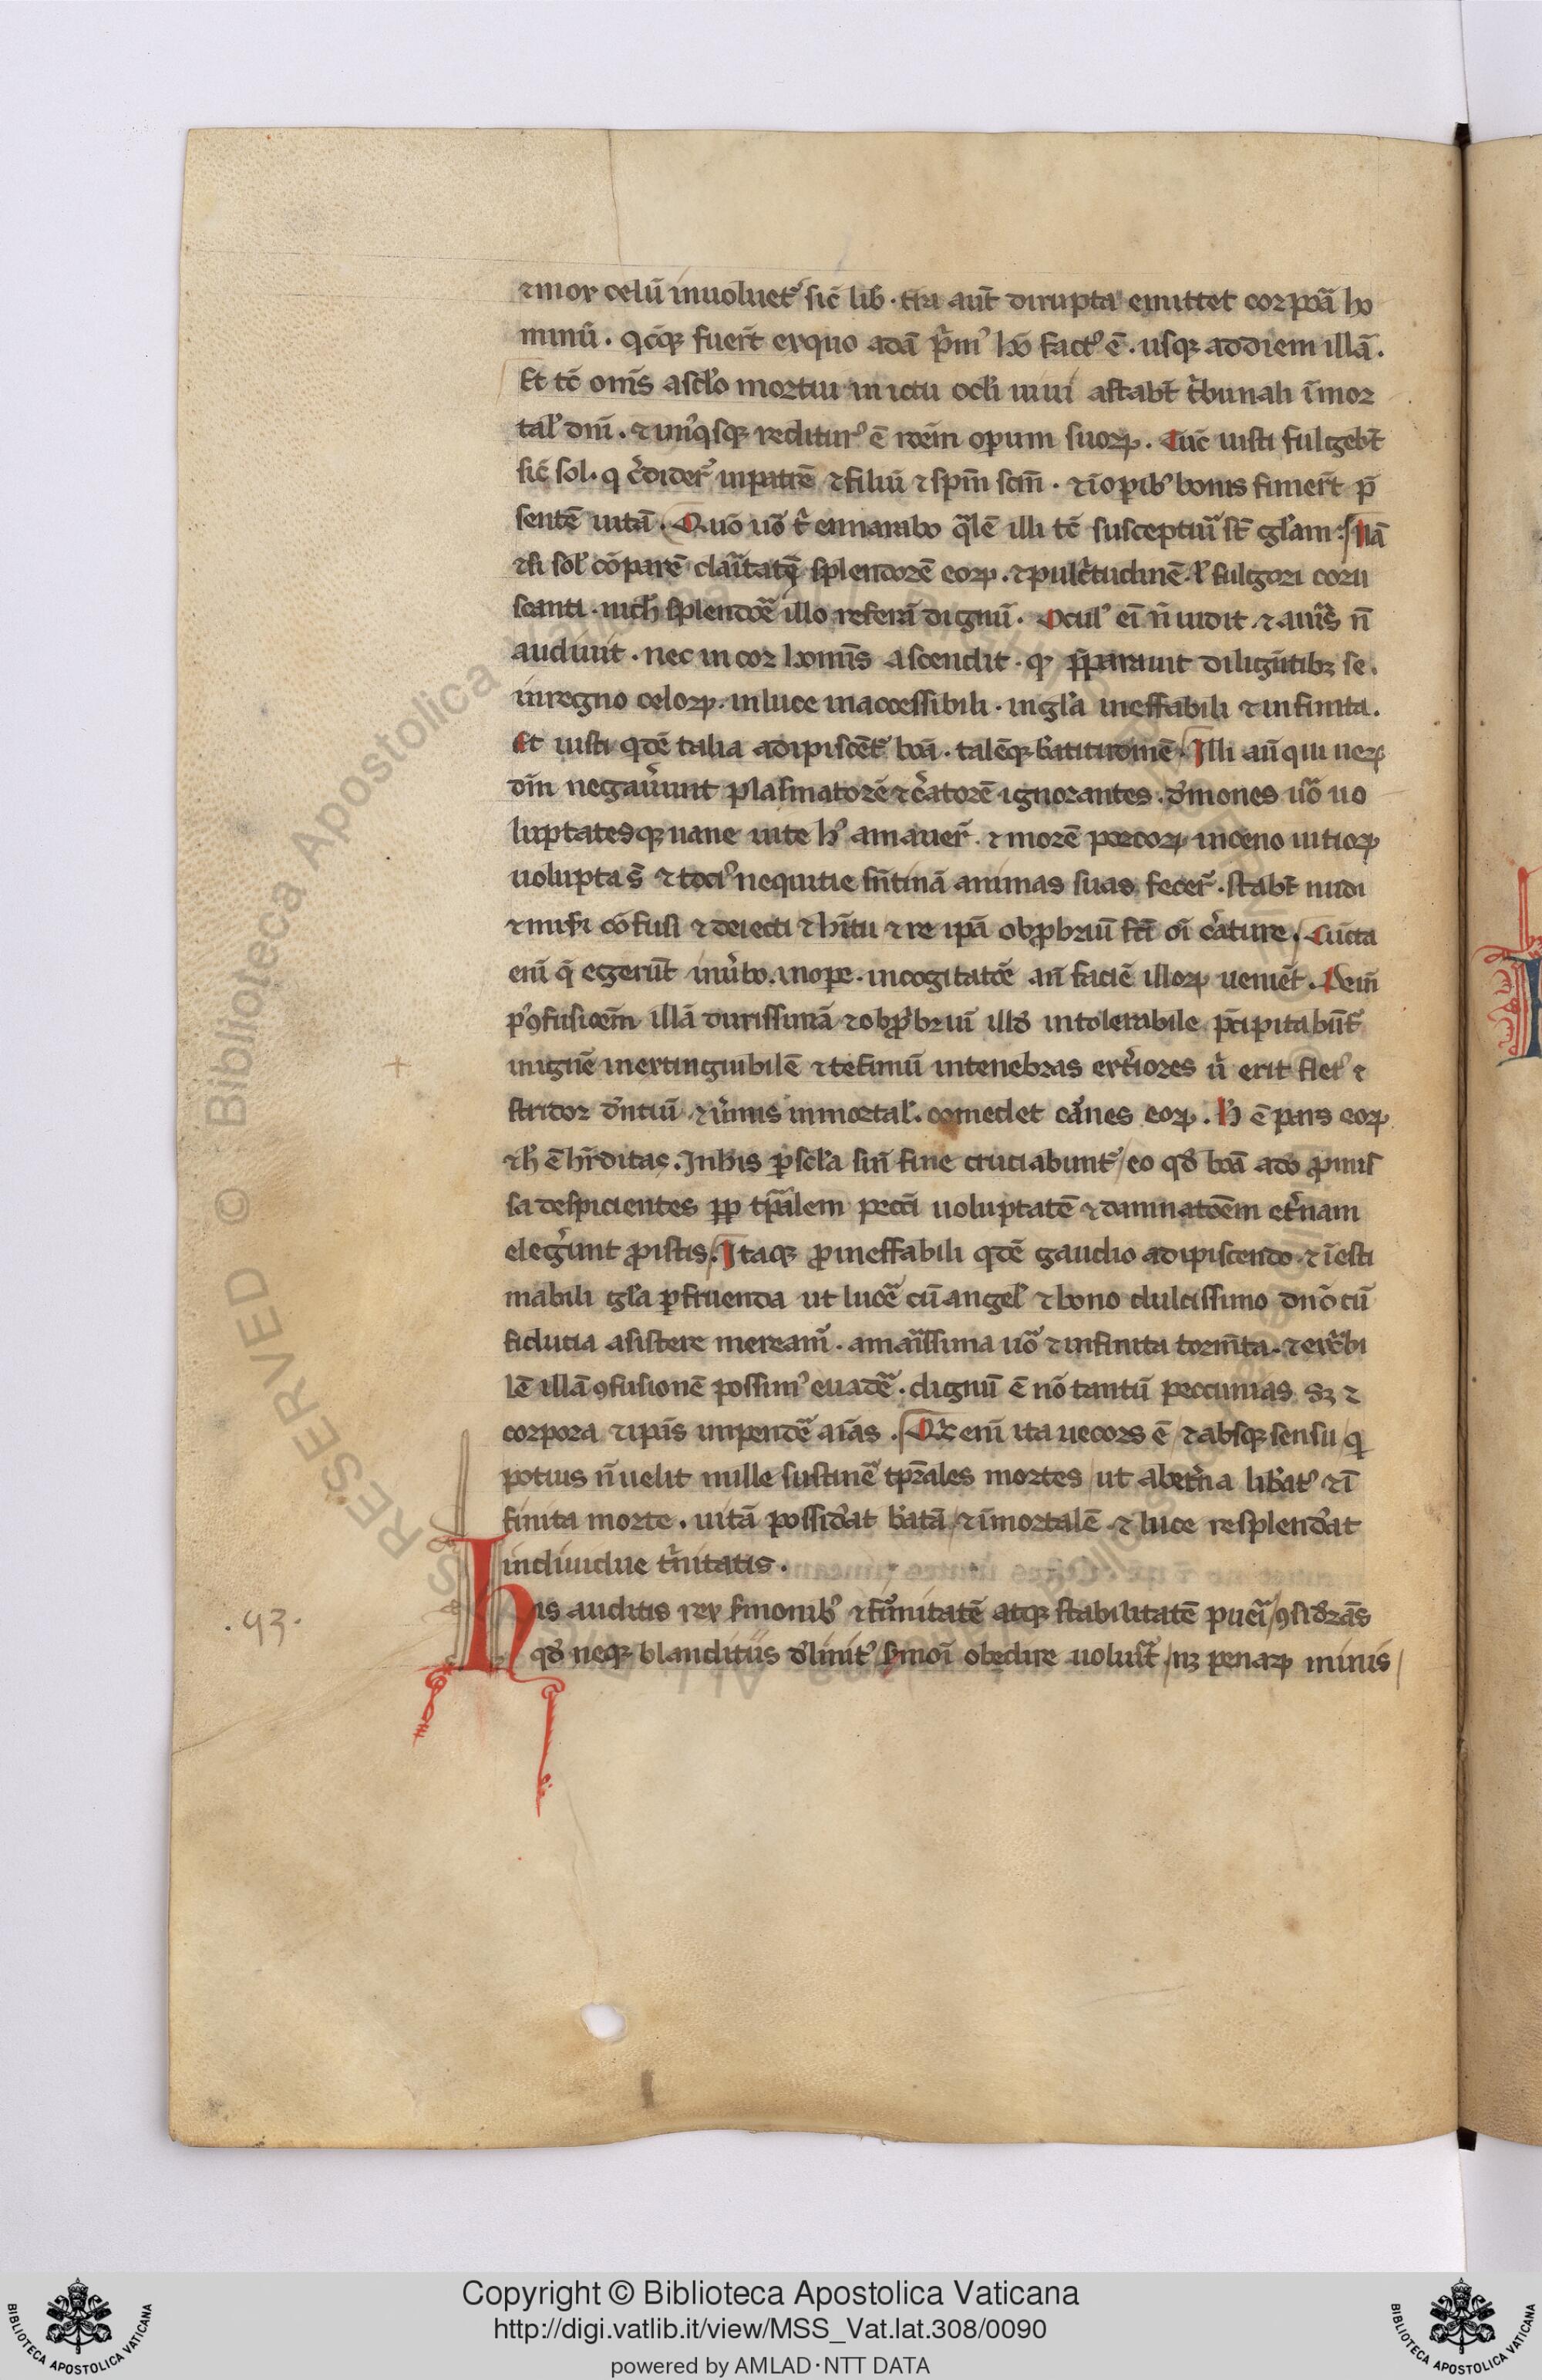 ⁊ mox celū inuoluet᷑ sic̄ lib̄ · t̄ra aut̄ dirupta emittet corpoa᷑ ho
minū · q̄cūq; fuer̄t ex quo adā p̄m᷒ hō fact᷒ ē · usq; ad diem illā ·
Et tc̄ om̄s a sc̄lo mortui in ictu oc̄li uiui astabt̄ t̄bunali īmor
tal᷒ dn̄i · ⁊ un᷒q̄sq; reditur᷒ ē roēm oꝑum suoꝝ · Tūc iusti fulgebt̄
sic̄ sol · q̄ c̄dider̄ in patrē ⁊ filiū ⁊ sp̄m sc̄m · ⁊ ī oꝑib᷒ bonis finier̄t p̄
sentē uitā · Quō uō t̄ ennarabo q̄lē illi tc̄ susceptiu᷑ st̄ gl̄am · Nā
⁊ si sol᷒ cōparē claritatē splendorē eoꝝ · ⁊ pulc̄tudinē · l᷒ fulgori coru
scanti · nich̄ splendoē illo referā dignū · Ocul᷒ eī n̄ uidit · ⁊ auris n̄
audiuit · nec in cor homīs ascendit · q̄ p̄parauit diligētib; se ·
in regno celoꝝ · in luce inaccessibili · in gl̄a ineffabili ⁊ infinita ·
Et iusti q̄dē talia adipiscēt᷑ boā · talēq; b̄atitudinē · Illi aū qui ueꝝ
dm̄ negauerunt plasmatorē ⁊ c̄atorē ignorantes · dēmones uō uo
luptatesq; uane uite h᷒ amauer̄ · ⁊ morē porcoꝝ in ceno uitioꝝ
uolupta s̄ ⁊ toci᷒ nequitie sn̄tinā animas suas fecer̄ · stabt̄ nudi
⁊ mis̄i cōfusi ⁊ deiecti ⁊ hītu ⁊ re ip̄a obꝓbriū fc̄i oī c̄ature · Cūcta
enī q̄ egerūt in ūbo · in oꝑe · in cogitatōe an̄ faciē illoꝝ ueniēt · Dein̄
p᷒ ꝯfusioēm illā durissimā ⁊ obꝓbriū illd̄ intolerabile p̄cipitabūt᷑
in ignē inextinguibilē ⁊ tet̄imū in tenebras ext̄iores ū erit flet᷒ ⁊
stridor dētiū · ⁊ ūmis inmortal᷒ · comedet carnes eoꝝ · H̄ ē pars eoꝝ
⁊ h̄ ē hr̄ditas · In his ꝑ sc̄la sin̄ fine cruciabunt᷑ / eo qd̄ boā a dō ꝓmis
sa despicientes ꝓp̄ tp̄alem pecc̄i uoluptatē ⁊ damnatōem et̄nam
elegerunt ꝓ istis · Itaq; ꝓ ineffabili q̄dē gaudio adipiscendo · ⁊ ī esti
mabili gl̄a ꝑfruenda ut lucē cū angel᷒ ⁊ bono dulcissimo dn̄o cū
fiducia asistere meream᷑ · amarissima uō ⁊ infinita tormēta · ⁊ ext̄bi
lē illā ꝯfusionē possim᷒ euadē · dignū ē nō tantū peccunias sꝫ ⁊
corpora ⁊ ip̄as impendē aīas · Qis enī ita uecors ē / ⁊ absq; sensu / q̄
potius n̄ uelit mille sustinē tp̄ales mortes / ut ab et̄na lib̄at᷑ ⁊ ī
finita morte · uitā possid̄eat b̄atā / ⁊ īmortalē · ⁊ luce resplend̄eat
indiuidue t̄nitatis ·
His auditis rex s̄monib᷒ ⁊ firmitatē atq; stabilitatē pueī / ꝯsid̄rās
qd̄ neq; blanditiis d̄linit᷒ s̄moī obedire uoluit̄ / nꝫ penaꝝ minis /
· 93 ·
Copyright © Biblioteca Apostolica Vaticana
http://digi.vatlib.it/view/MSS_Vat.lat.308/0090
powered by AMLAD·NTT DATA